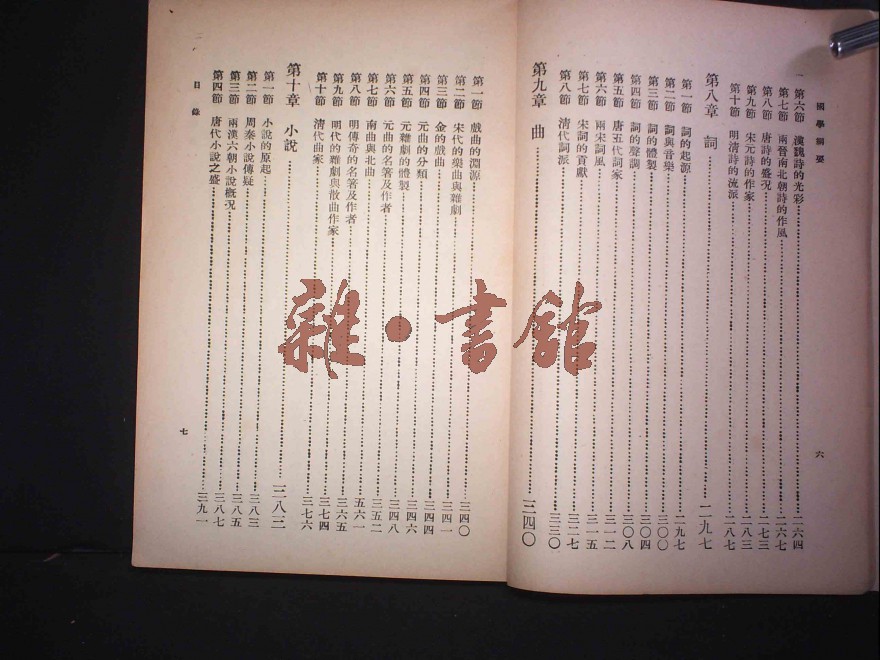 國學綱要
第六節 漢魏詩的光彩 二六四
第七節 兩晉南北朝詩的作風 二六七
第八節 唐詩的盛況 二七三
第九節 宋元詩的作家 二八三
第十節 明清詩的流派 二八七
第八章 詞 二九七
第一節 詞的起源 二九七
第二節 詞與音樂 三〇〇
第三節 詞的體製 三〇四
第四節 詞的聲調 三〇八
第五節 唐五代詞家 三一二
第六節 兩宋詞風 三一五
第七節 宋詞的貢獻 三二七
第八節 清代詞派 三三〇
第九章 曲 三四〇
六
第一節 戲曲的淵源 三四〇
第二節 宋代的樂曲與雜劇 三四一
第三節 金的戲曲 三四四
第四節 元曲的分類 三四六
第五節 元雜劇的體製 三四八
第六節 元曲的名著及作者 三五二
第七節 南曲與北曲 五六一
第八節 明傳奇的名著及作者 三六五
第九節 明代的雜劇與散曲作家 三七四
第十節 清代曲家 三七六
第十章 小說 三八三
第一節 小說的原起 三八三
第二節 周秦小說傳疑 三八五
第三節 兩漢六朝小說概況 三八七
第四節 唐代小說之盛 三九一
目錄
七
雜·書館